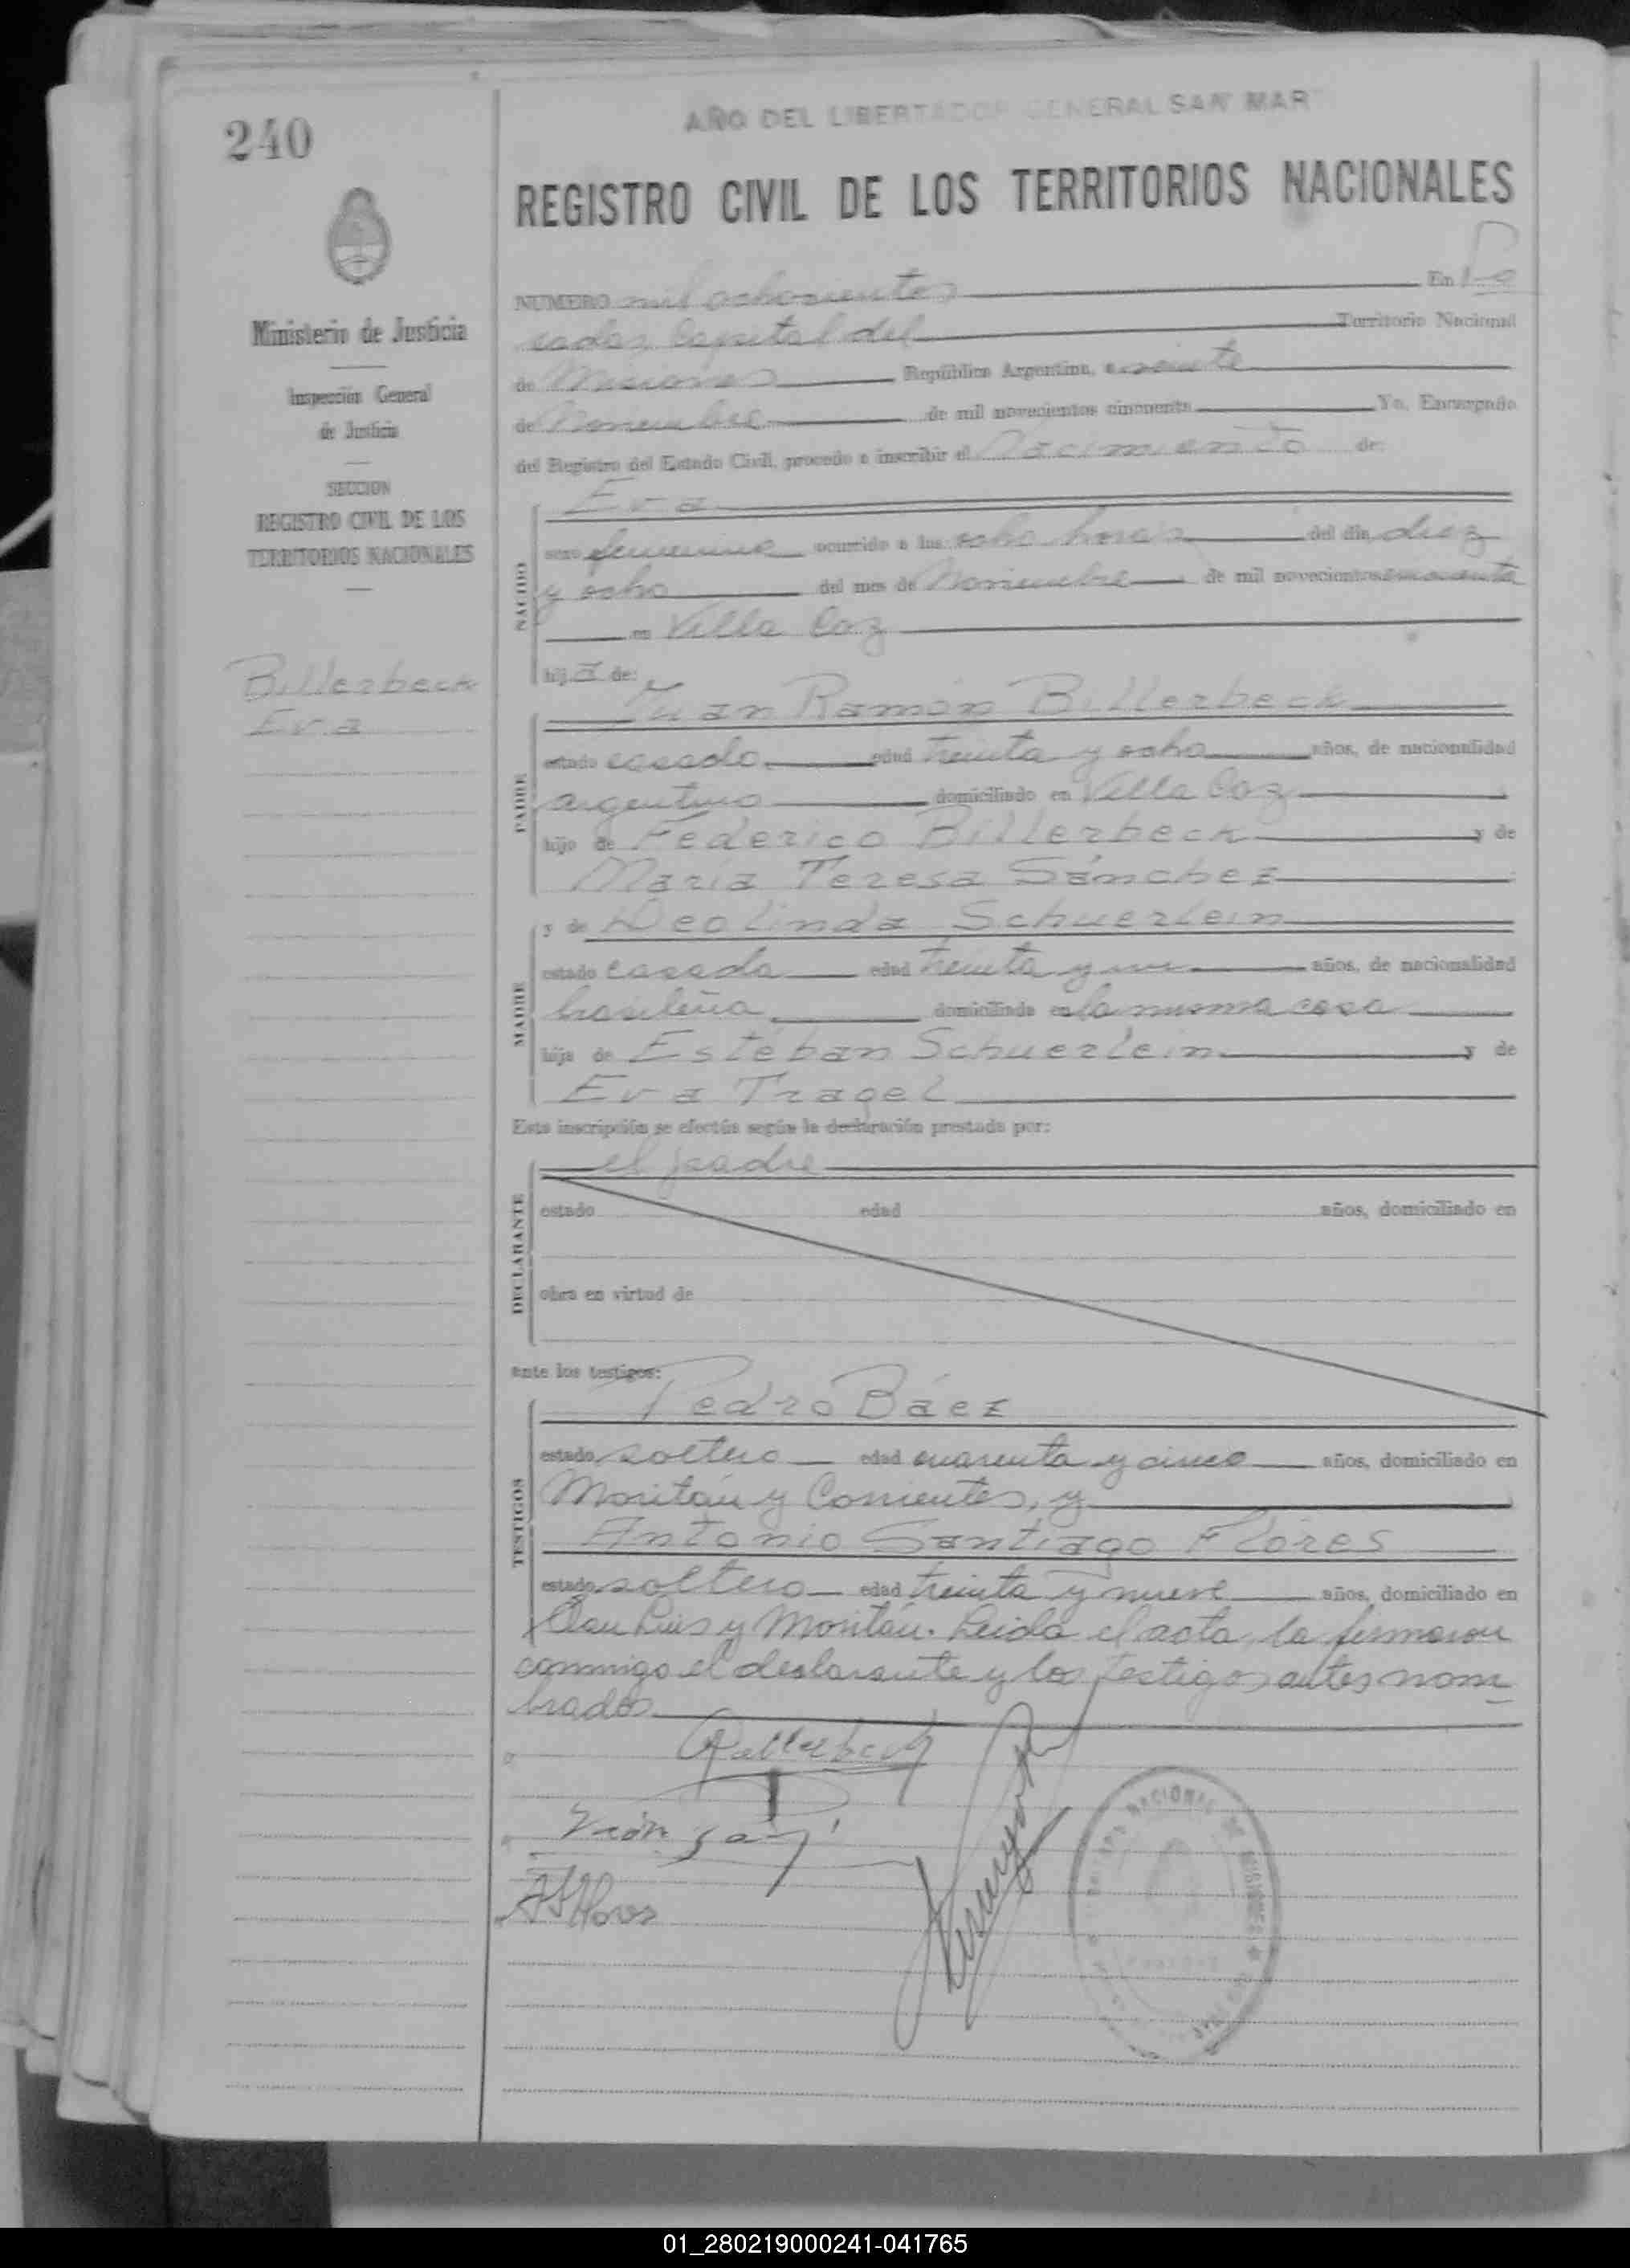 240
AÑO DEL LIBERTADOR GENERAL SAN MAR
REGISTRO CIVIL DE LOS TERRITORIOS NACIONALES
Ministerio de Justicia
Inspección General
de Justicia
SECCION
REGISTRO CIVIL DE LOS
TERRITORIOS NACIONALES
Billerbeck
Eva
NUMERO mil ochocientos En Po
sadas, Capital del Territorio Nacional
de Misiones República Argentina, a veinte
de Noviembre de mil novecientos cincuenta Yo, Encargado
del Registro del Estado Civil, procedo a inscribir el Nacimiento de:
NACIDO
Eva
sexo femenino ocurrido a las ocho horas del día diez
y ocho del mes de Noviembre de mil novecientos cincuenta
en Villa Coz
hija de:
PADRE
Juan Ramón Billerbeck
estado casado edad treinta y ocho años, de nacionalidad
argentino domiciliado en Villa Coz
hijo de Federico Billerbeck y de
María Teresa Sánchez
MADRE
y de Deolinda Schuerlein
estado casada edad treinta y un años, de nacionalidad
brasileña domiciliada en la misma casa
hija de Esteban Schuerlein y de
Eva Tragel
Esta inscripción se efectúa según la declaración prestada por:
DECLARANTE
el padre
estado edad años, domiciliado en
obra en virtud de
ante los testigos:
TESTIGOS
Pedro Báez
estado soltero edad cuarenta y cinco años, domiciliado en
Moritán y Corrientes, y
Antonio Santiago Flores
estado soltero edad treinta y nueve años, domiciliado en
San Luis y Moritán. Leida el acta, la firmaron
conmigo el declarante y los testigos antes nom
brados.
RBillerbeck
ASFlores
01_280219000241-041765